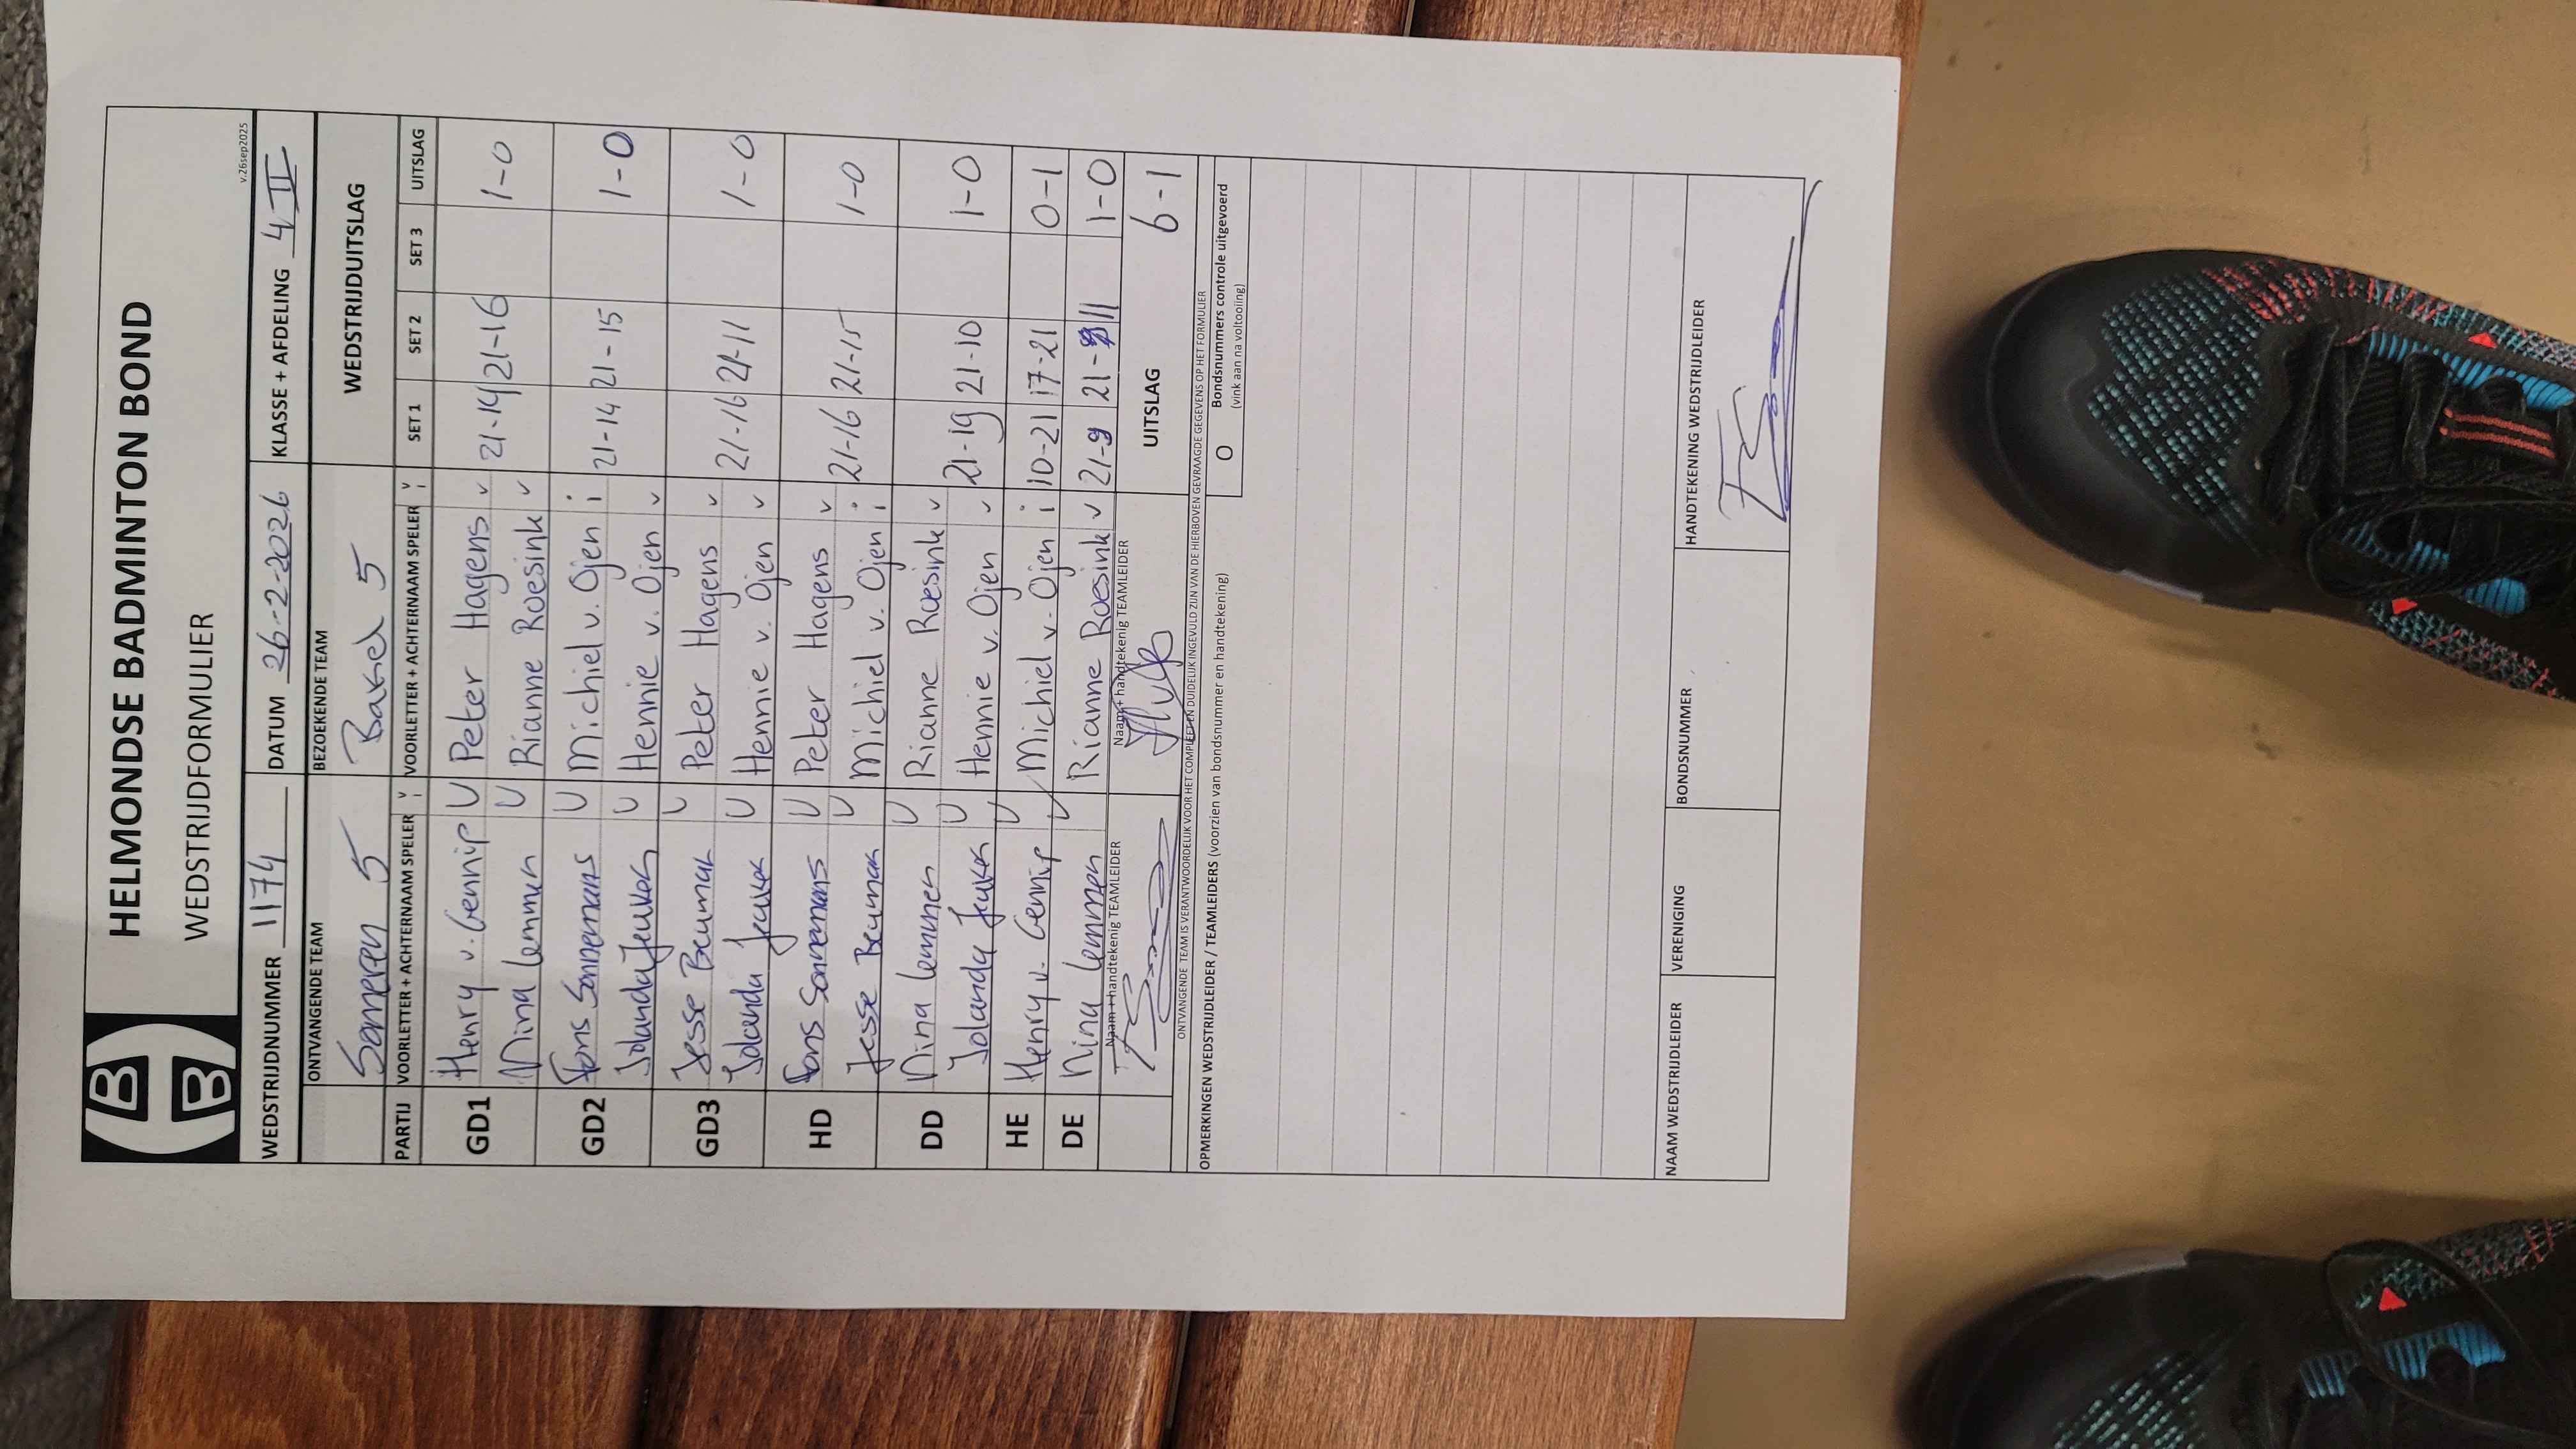 HELMONDSE BADMINTON BOND
WEDSTRIJDFORMULIER
v.26sep2025
WEDSTRIJDNUMMER 1174 DATUM 26-2-2026 KLASSE + AFDELING 4 II
ONTVANGENDE TEAM BEZOEKENDE TEAM WEDSTRIJDUITSLAG
Someren 5 Bakel 5
PARTIJ VOORLETTER + ACHTERNAAM SPELER V i VOORLETTER + ACHTERNAAM SPELER V i SET 1 SET 2 SET 3 UITSLAG
GD1 Henry v. Gennip V Peter Hagens v 21-14 21-16 1-0
Nina Lemmen V Rianne Roesink v
GD2 Fons Sonnemans V Michiel v. Ojen i 21-14 21-15 1-0
Jolanda V Hennie v. Ojen v
GD3 Jesse V Peter Hagens v 21-16 21-11 1-0
Jolanda V Hennie v. Ojen v
HD Fons Sonnemans V Peter Hagens v 21-16 21-15 1-0
Jesse V Michiel v. Ojen i
DD Nina Lemmen V Rianne Roesink v 21-19 21-10 1-0
Jolanda V Hennie v. Ojen v
HE Henry v. Gennip V Michiel v. Ojen i 10-21 17-21 0-1
DE Nina Lemmen V Rianne Roesink v 21-9 21-11 1-0
Naam + handtekenig TEAMLEIDER Naam + handtekenig TEAMLEIDER UITSLAG 6-1
ONTVANGENDE TEAM IS VERANTWOORDELIJK VOOR HET COMPLEET EN DUIDELIJK INGEVULD ZIJN VAN DE HIERBOVEN GEVRAAGDE GEGEVENS OP HET FORMULIER
OPMERKINGEN WEDSTRIJDLEIDER / TEAMLEIDERS (voorzien van bondsnummer en handtekening) O Bondsnummers controle uitgevoerd
(vink aan na voltooiing)
NAAM WEDSTRIJDLEIDER VERENIGING BONDSNUMMER HANDTEKENING WEDSTRIJDLEIDER